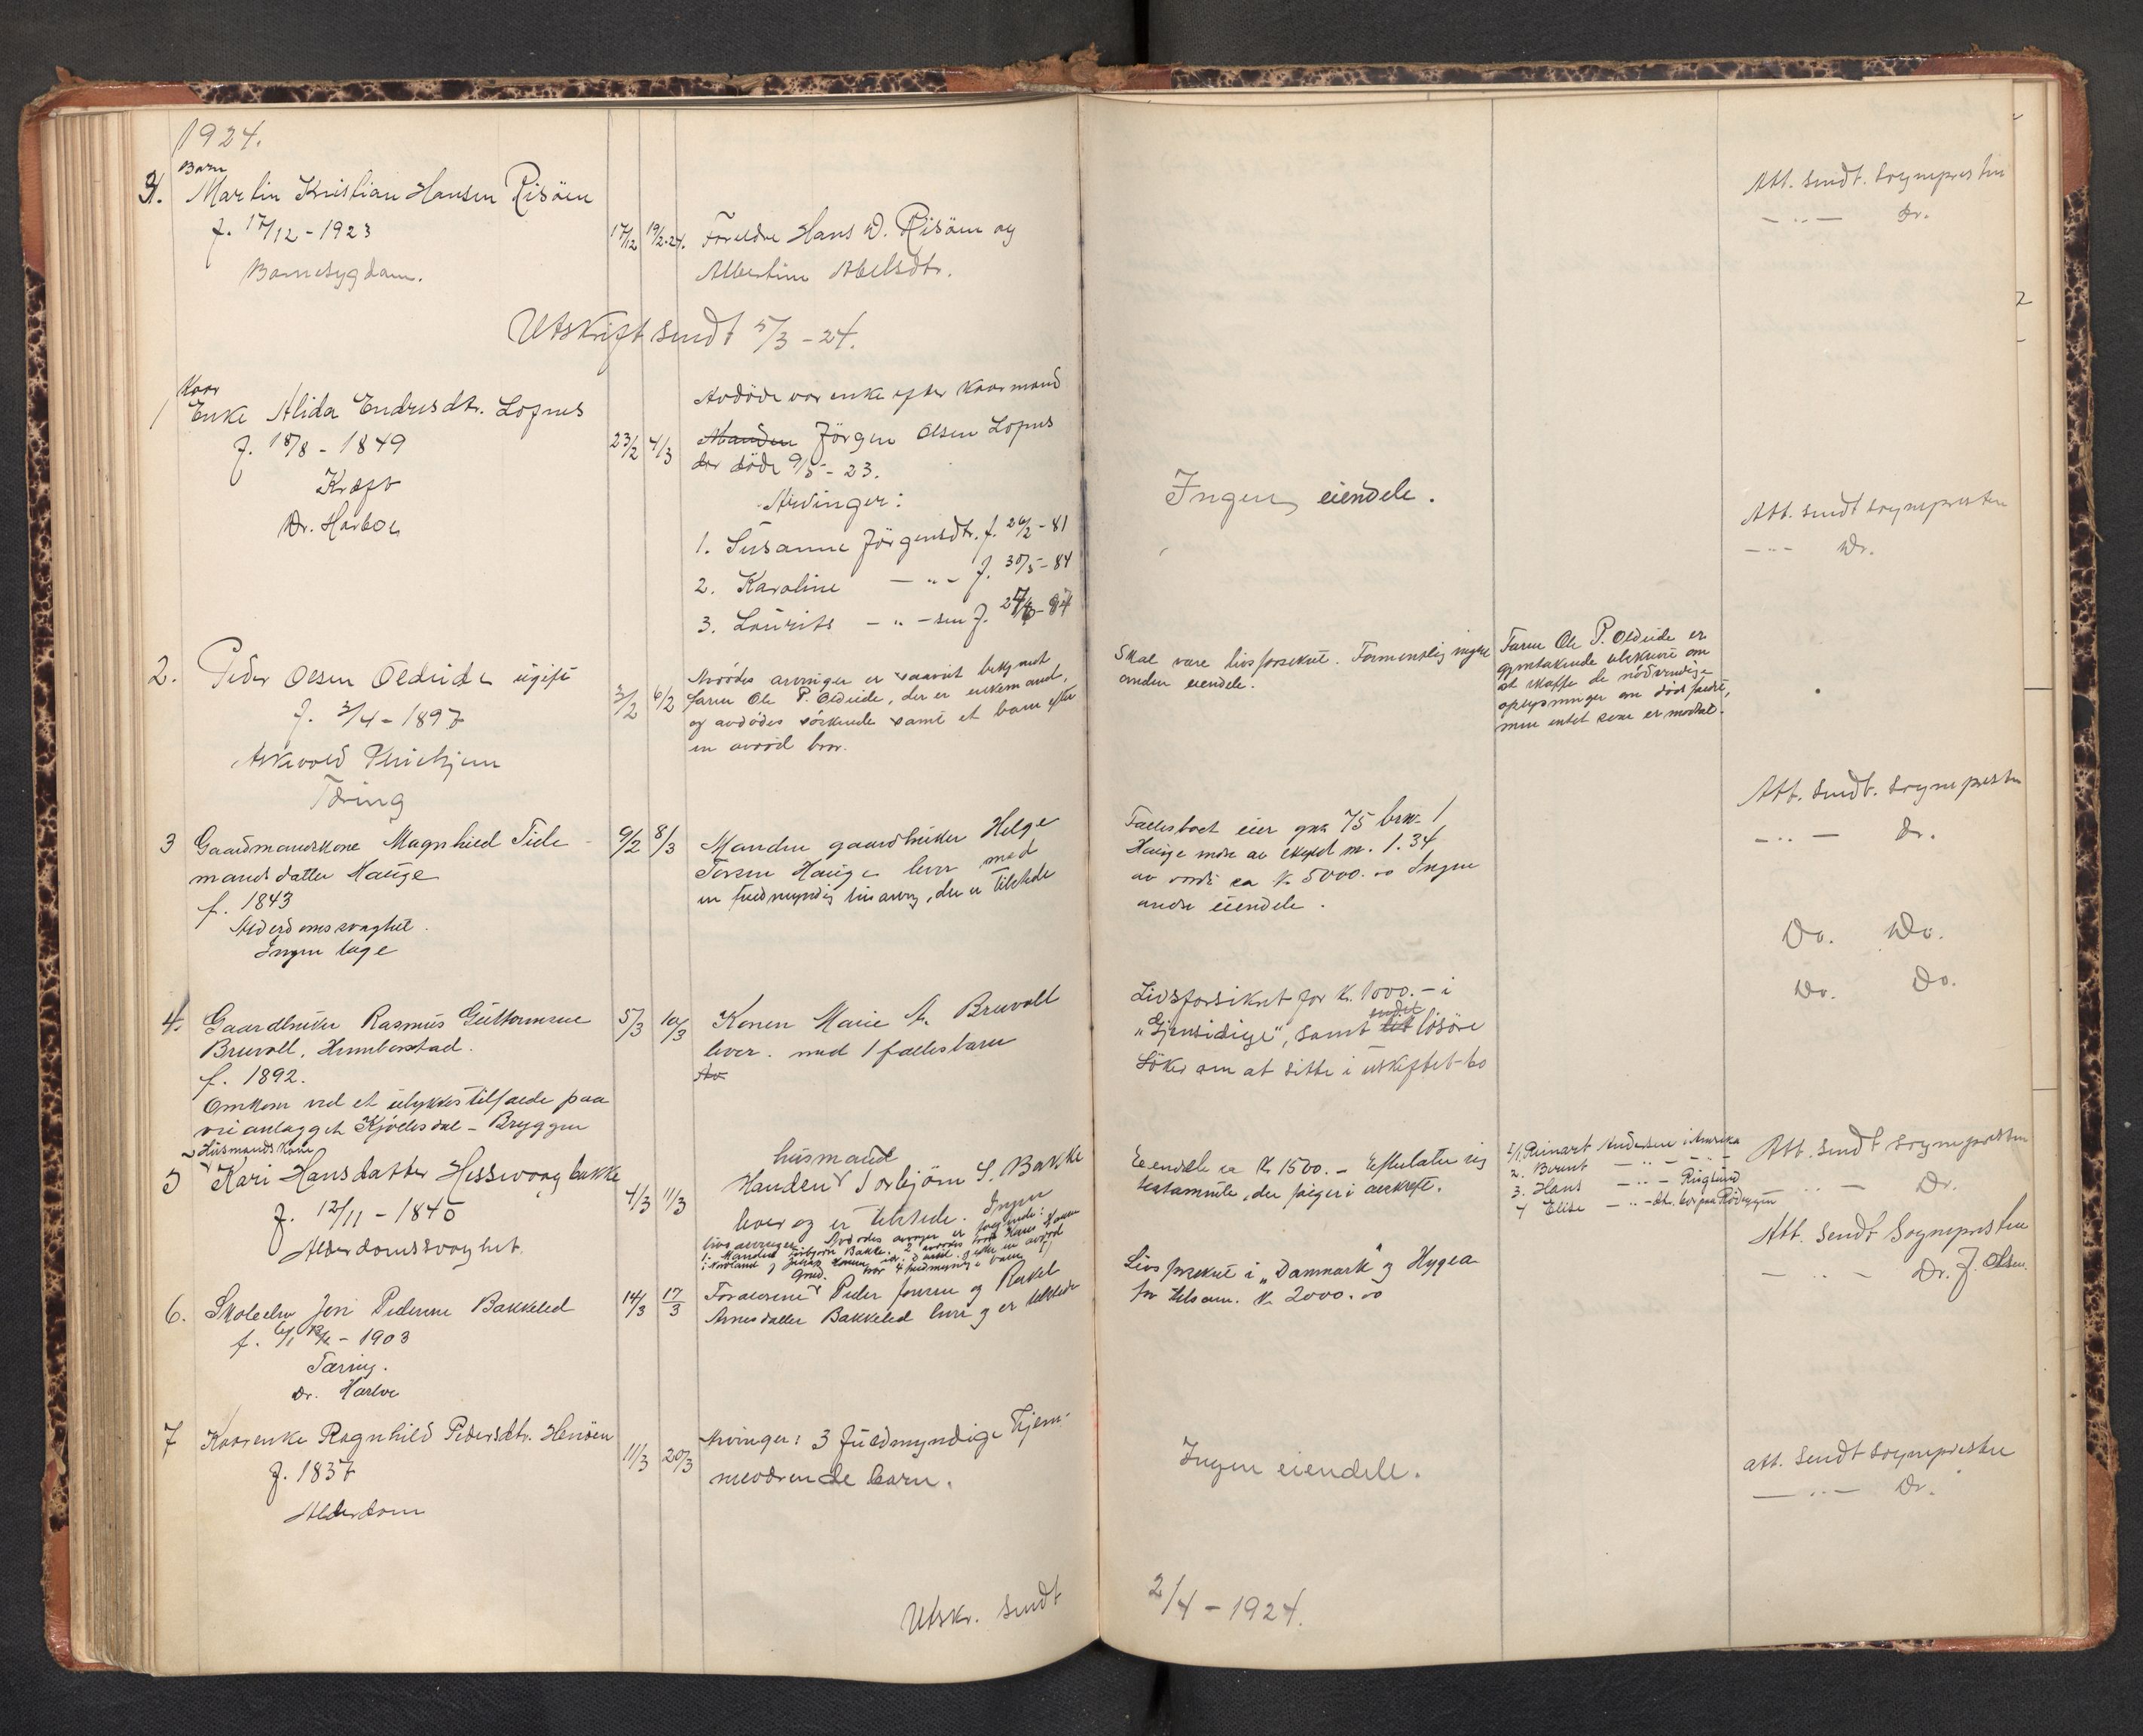 1924.
Barn
Martin Kristian Hansen Risöen
f. 17/12 - 1923
Barnesygdom.
17/12 19/2-24.
Foreldre Hans D. Risöen og
Albertine Abelsdtr.
Att. sendt. Sognepresten
— " — Dr.
Utskrift sendt 5/3 - 24.
1
Kaar
Enke Alida Endresdtr. Lofnes
f. 18/8 - 1849
Kræft
Dr. Harboe
23/2 4/3
Avdöde var enke efter Kaarmand
Manden Jörgen Olsen Lofnes
der döde 9/5 - 23.
Arvinger:
1. Susanne Jörgensdtr. f. 26/2 - 81
2. Karoline — " — f. 30/5 - 84
3. Laurits — " — sen f.
Ingen eiendele.
Att. sendt sognepresten
— " — Dr.
2. Peder Olsen Oldeide ugift
f. 3/4 - 1897
Tæring
3/2 6/2
Avdödes arvinger er saavit bekjendt
faren Ole P. Oldeide, der er enkemand,
og avdödes söskende samt et barn efter
en avdöd bror.
Skal være livsforsikret. Formentlig ingen
anden eiendele.
Faren Ole P. Oldeide er
gjentakende tilskrevet om
at skaffe de nödvendige
oplysninger om dödsfaldet,
men intet svar er mottat.
Att. sendt. sogneprest
— " — Dr.
3 Gaardmandskone Magnhild Tiele
mandsdatter Hauge
f. 1843
Alderdomssvaghet.
Ingen læge
9/2 8/3
Manden gaardbruker Helge
Tersen Hauge lever med
en fuldmyndig livsarving, der er tilstede
Fællesboet eier gna 75 brn. 1
Hauge indre av skyld m. 1.34
av værdi ca Kr 5000.00 Ingen
andre eiendele.
Do. Do.
4. Gaardbruker Rasmus Guttormsen
Bruvoll, Humberstad.
f. 1892.
Omkom ved et ulykkestilfælde paa
veianlægget Kjölsdal - Bryggen
5/3 10/3
Konen Marie A. Bruvoll
lever. med 1 fællesbarn
Av
Livsforsikret for Kr. 1000. - i
"Gjensidige", samt litt endel lösöre
Söker om at sitte i uskiftet bo
Do. Do.
Husmandskone
5 Kari Hansdatter Hessevaag bakke
f. 12/11 - 1845
Alderdomssvaghet.
4/3 11/3
husmand
Manden Torbjörn S. Bakke
lever og er tilstede. Ingen
livsarvinger. Avdödes arvinger er fölgende:
1. Manden Torbjörn Bakke. 2 avdödes bror Hans Hansen
Eiendele ca Kr 1500. - Efterlater sig
testamente, der fölger i avskrift.
1. Reinart Andersen i Amerika
2. Bernt — " — " —
3. Hans — " — Rugsund
4 Elise — " — dtr. bor paa Rödbergen
Att. sendt sogneprsten
— " — Dr.
6. Skoleelev Jens Pedersen Bakkeled
f. 1903
Tæring.
Dr. Harboe
14/3 17/3
Forældrene Peder Jensen og Rakel
Arnesdatter Bakkeled lever og er tilstede
Livsforsikret i "Danmark" og Hygea
for tilsam. Kr. 2000.00
Att. sendt Sogneprsten
— " — Dr. J. Olsen.
7 Kaarenke Ragnhild Pedersdtr. Henöen
f. 1837
Alderdom
11/3 20/3
Arvinger: 3 fuldmyndige hjem-
meværende barn.
Ingen eiendele.
att. sendt sogneprsten
— " — Dr.
Utskr. sendt 2/4 - 1924.